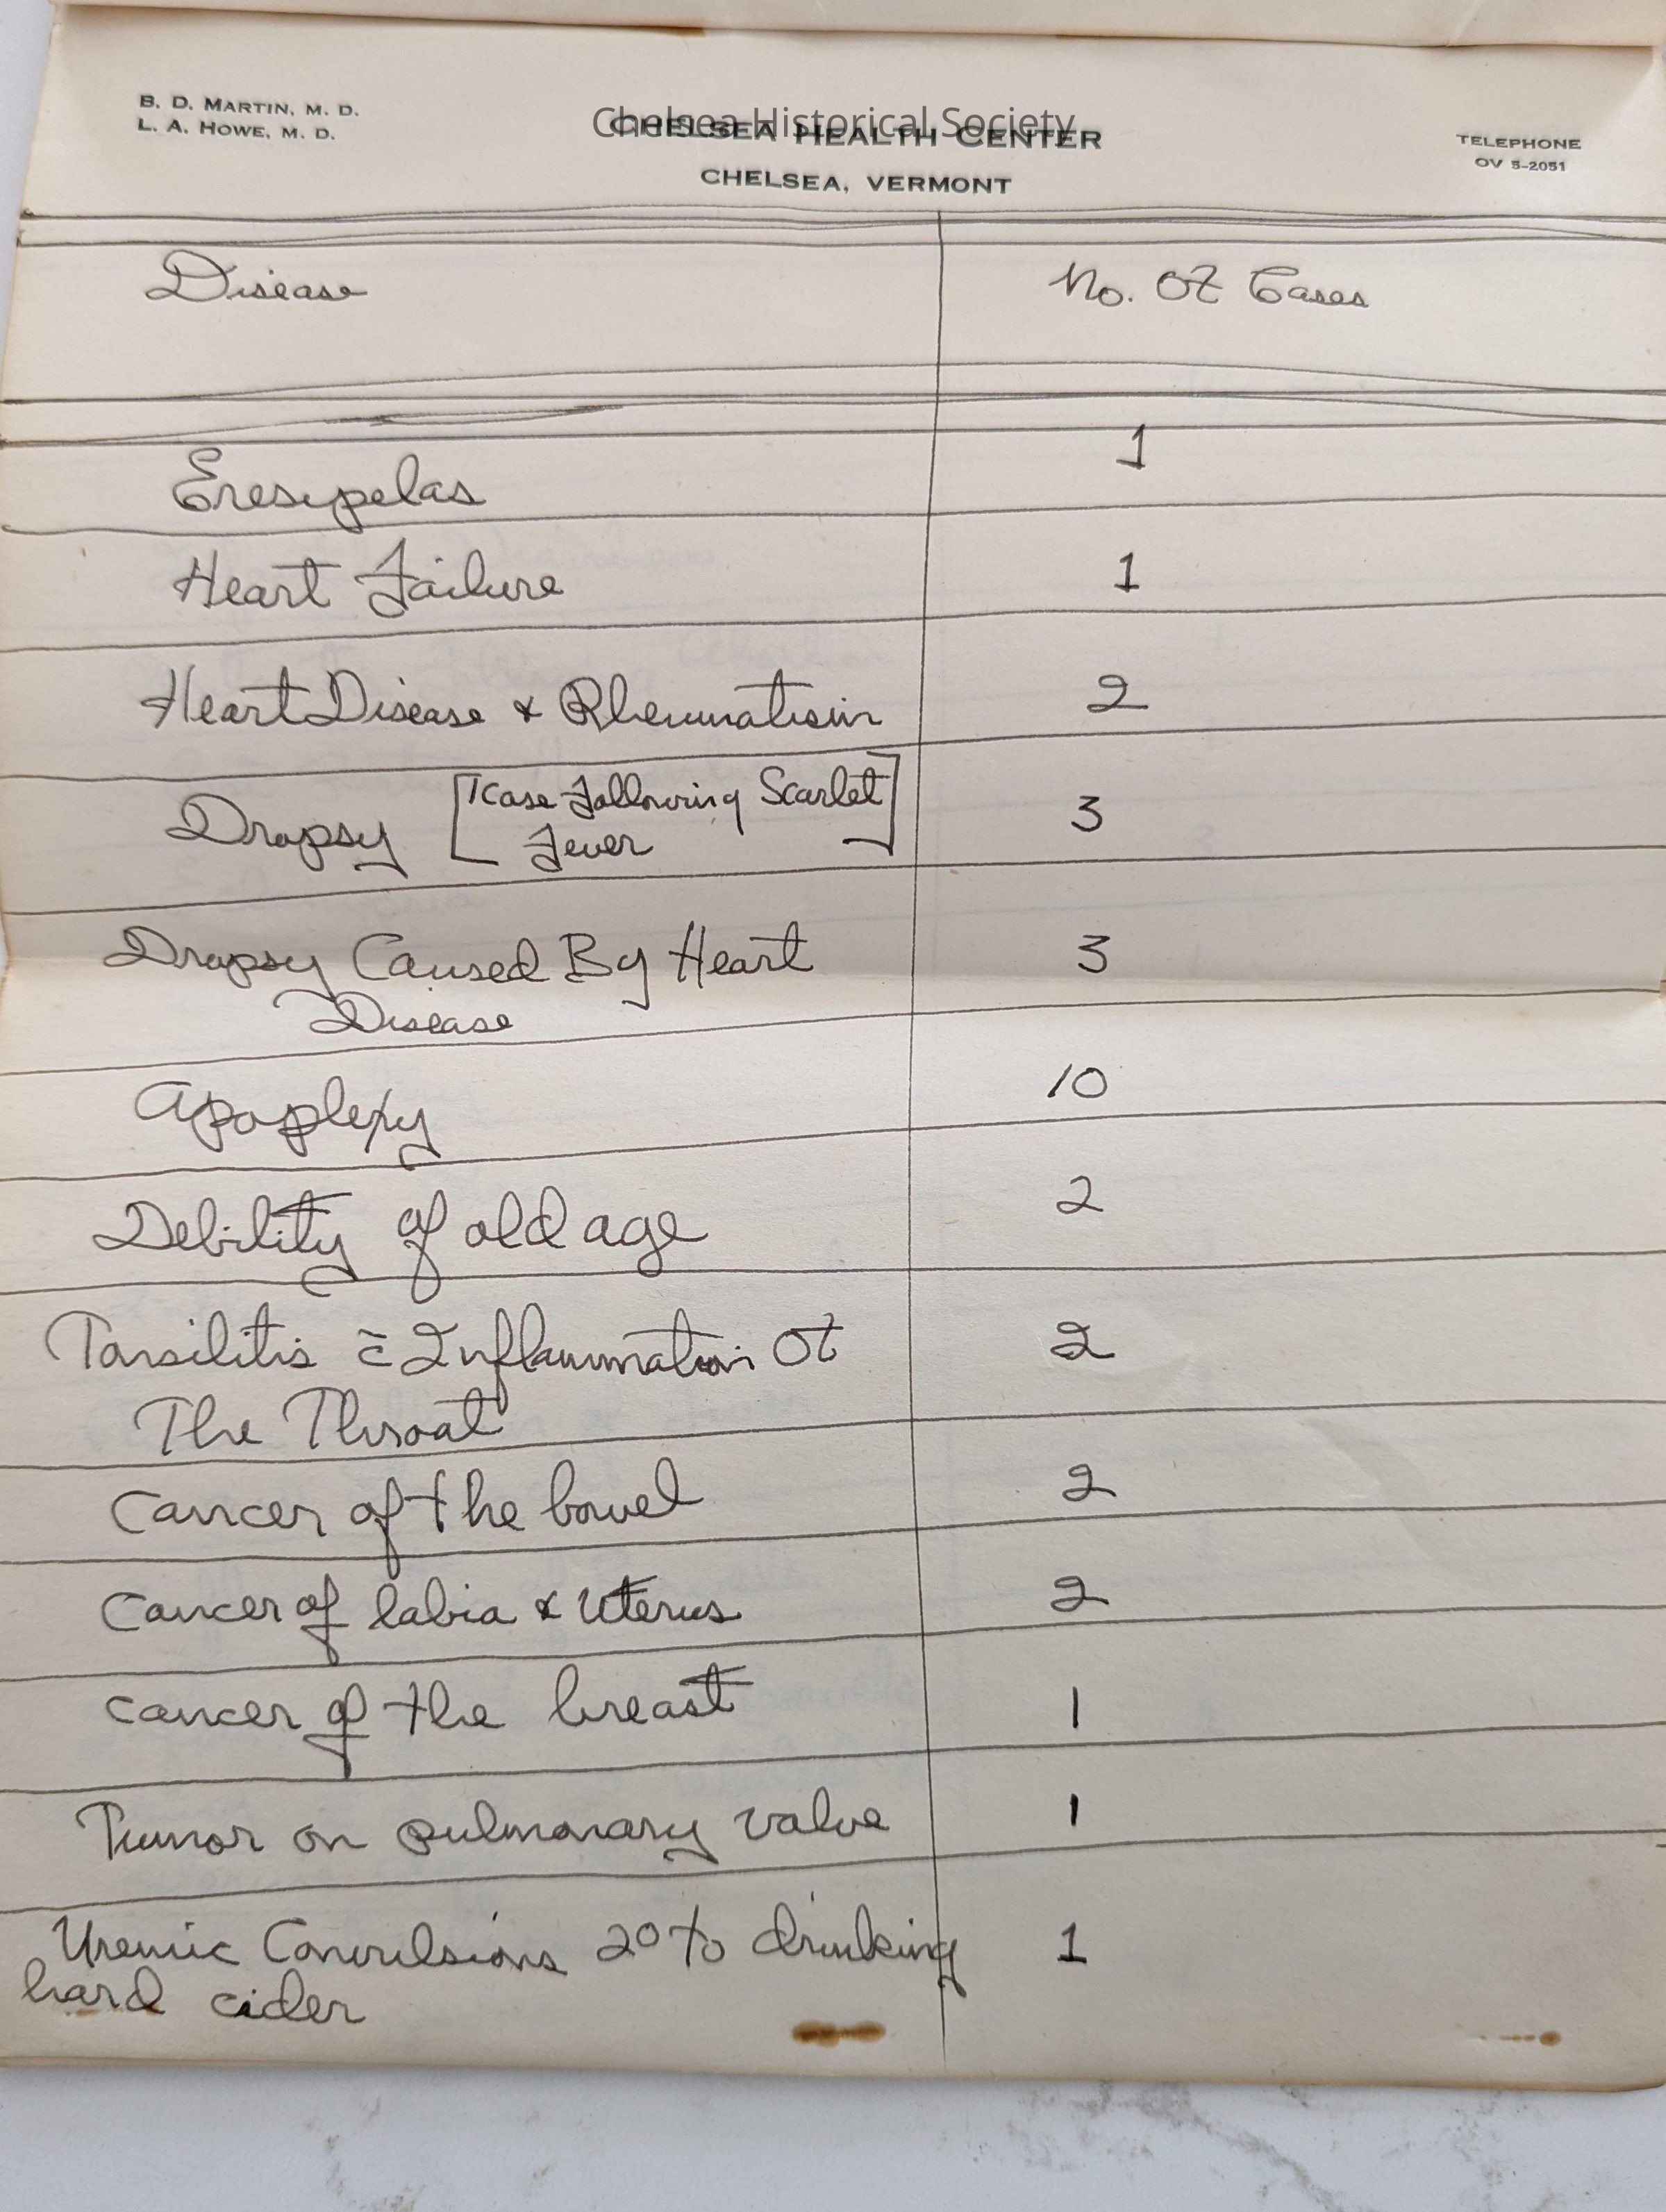 Chelsea Historical Society
B. D. MARTIN, M. D.
L. A. HOWE, M. D.
CHELSEA HEALTH CENTER
CHELSEA, VERMONT
TELEPHONE
OV 5-2051
Disease No. Of Cases
Eresypelas 1
Heart Failure 1
Heart Disease & Rheumatism 2
Dropsy [1 Case Following Scarlet
Fever] 3
Dropsy Caused By Heart 3
Disease
Apoplexy 10
Debility of old age 2
Tonsilitis c̄ Inflammation Of 2
The Throat
Cancer of the bowel 2
Cancer of labia & Uterus 2
Cancer of the breast 1
Tumor on pulmonary valve 1
Uremic Convulsions 2° to drinking 1
hard cider